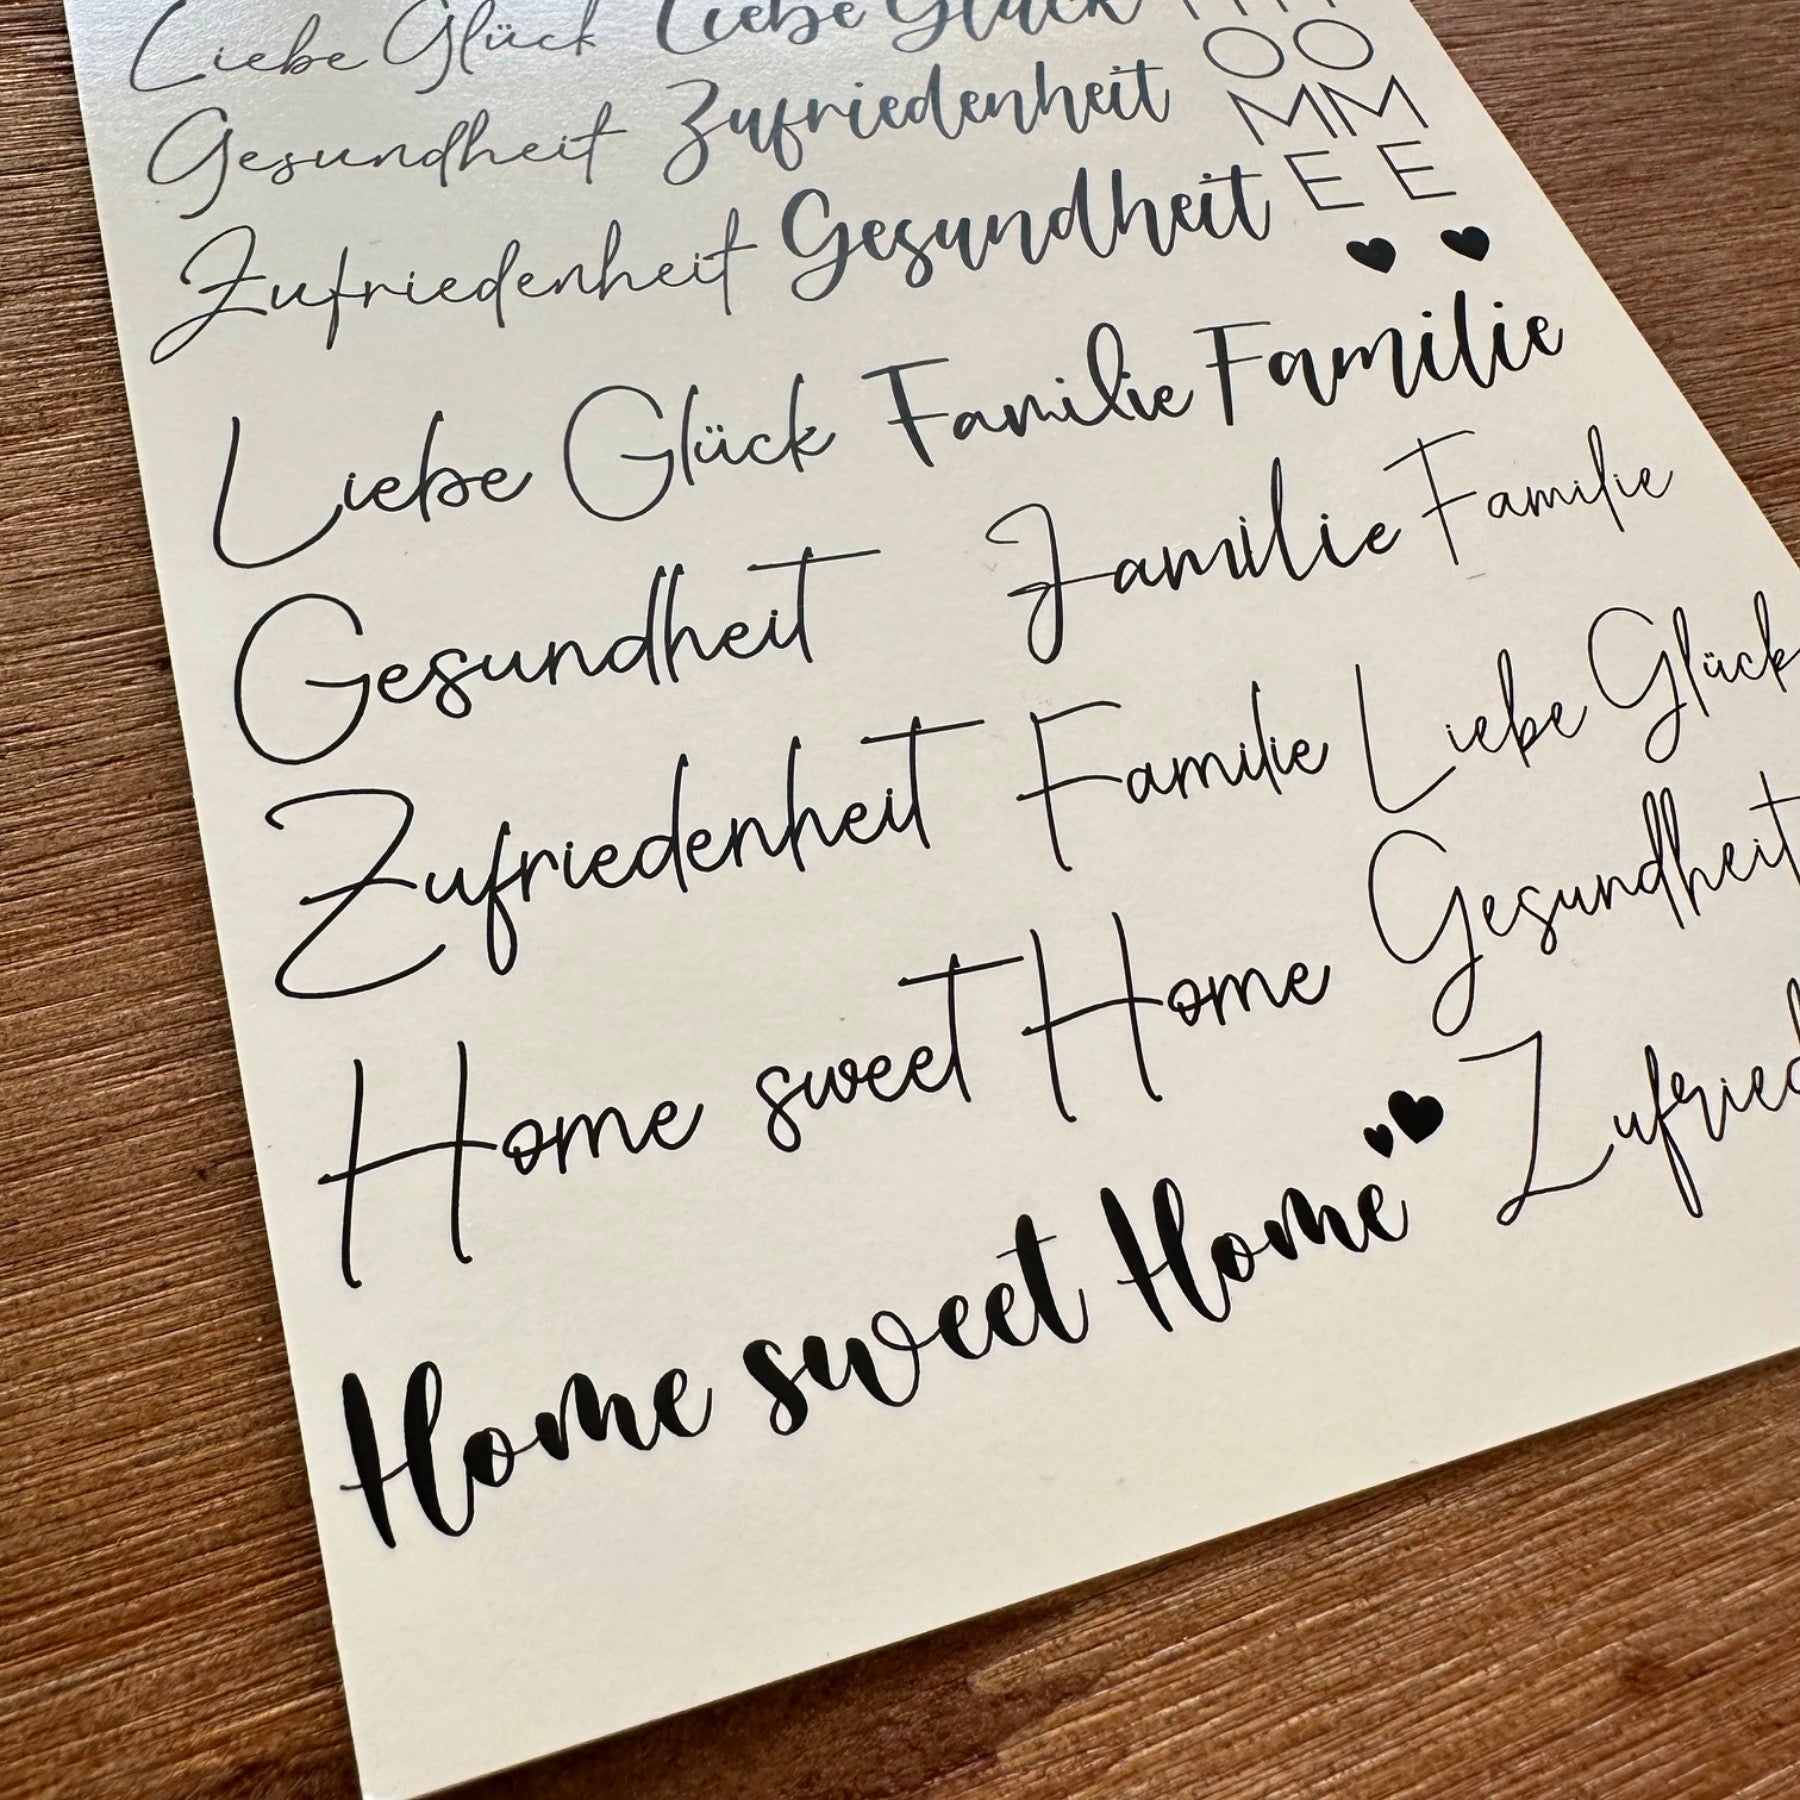 Liebe Glück Liebe Glück
Gesundheit Zufriedenheit
HOME HOME
Zufriedenheit Gesundheit
Liebe Glück Familie Familie
Gesundheit Familie Familie
Zufriedenheit Familie Liebe Glück
Home sweet Home Gesundheit
Home sweet Home